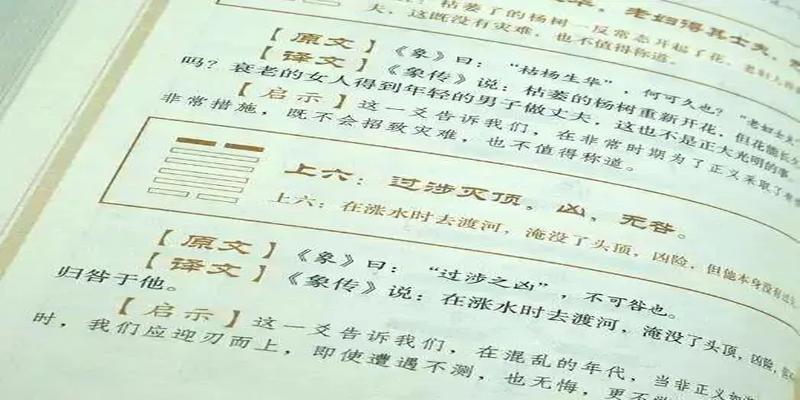 枯萎了的杨树一反常态开起了花，老妇人
夫，这既没有灾难，也不值得称道。
【原文】《象》曰：“枯杨生华”，何可久也？“老妇士夫
【译文】《象传》说：枯萎的杨树重新开花，但花能长久
吗？衰老的女人得到年轻的男子做丈夫，这也不是正大光明的事。
【启示】这一爻告诉我们，在非常时期为了正义采取了
非常措施，既不会招致灾难，也不值得称道。
上六：过涉灭顶，凶，无咎。
上六：在涨水时去渡河，淹没了头顶，凶险，但他本身没有过
【原文】《象》曰：“过涉之凶”，不可咎也。
【译文】《象传》说：在涨水时去渡河，淹没了头顶，凶险，
归咎于他。
【启示】这一爻告诉我们，在混乱的年代，当非正义如
时，我们应迎刃而上，即使遭遇不测，也无悔，更不